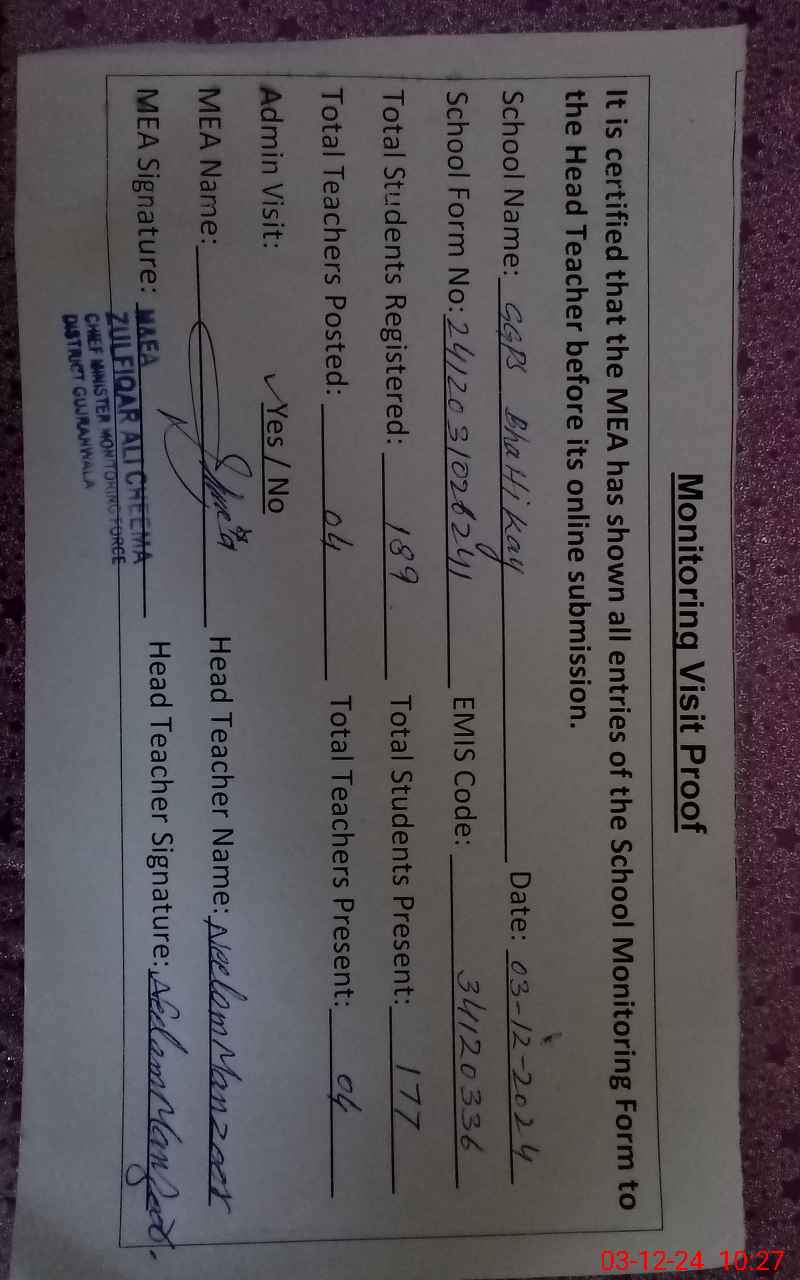 Monitoring Visit Proof
It is certified that the MEA has shown all entries of the School Monitoring Form to
the Head Teacher before its online submission.
School Name: GGPS Bhatti Kay Date: 03-12-2024
School Form No: EMIS Code: 34120336
Total Students Registered: 189 Total Students Present: 177
Total Teachers Posted: 04 Total Teachers Present: 04
Admin Visit: ✓Yes / No
MEA Name: Head Teacher Name: Neelam Manzoor
MEA Signature: Head Teacher Signature: Neelam Manzoor.
M&EA
ZULFIQAR ALI CHEEMA
CHIEF MINISTER MONITORING FORCE
DISTRICT GUJRANWALA
03-12-24 10:27